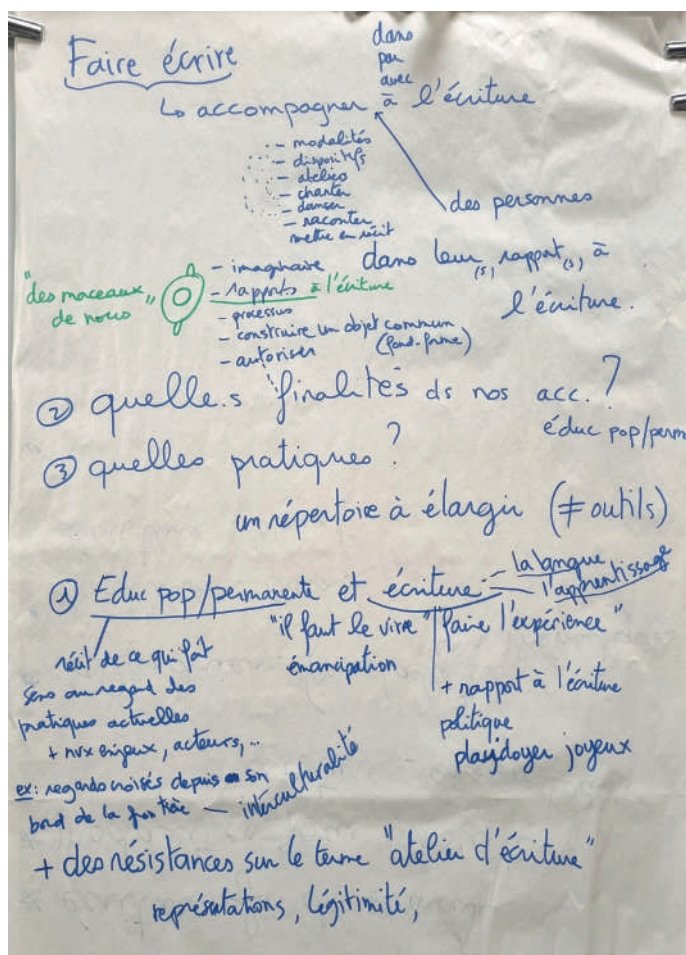 Faire écrire
dans
par
avec
↳ accompagner à l'écriture
- modalités
- dispositifs
- ateliers
- chanter
- danser
- raconter
mettre en récit
des personnes
dans leur(s) rapport(s) à
l'écriture.
"des morceaux
de nous"
- imaginaire
- rapports à l'écriture
- processus
- construire un objet commun
(fond-forme)
- autoriser
② quelle.s finalités ds nos acc. ?
éduc pop/perm
③ quelles pratiques ?
un répertoire à élargir (≠ outils)
① Educ pop/permanente et écriture - la langue
- l'apprentissage
récit de ce qui fait
sens au regard des
pratiques actuelles
+ nvx enjeux, acteurs, ...
ex: regards croisés depuis son
bord de la frontière — interculturalité
"il faut le vivre" "faire l'expérience"
émancipation
+ rapport à l'écriture
politique
plaidoyer joyeux
+ des résistances sur le terme "atelier d'écriture"
représentations, légitimité,